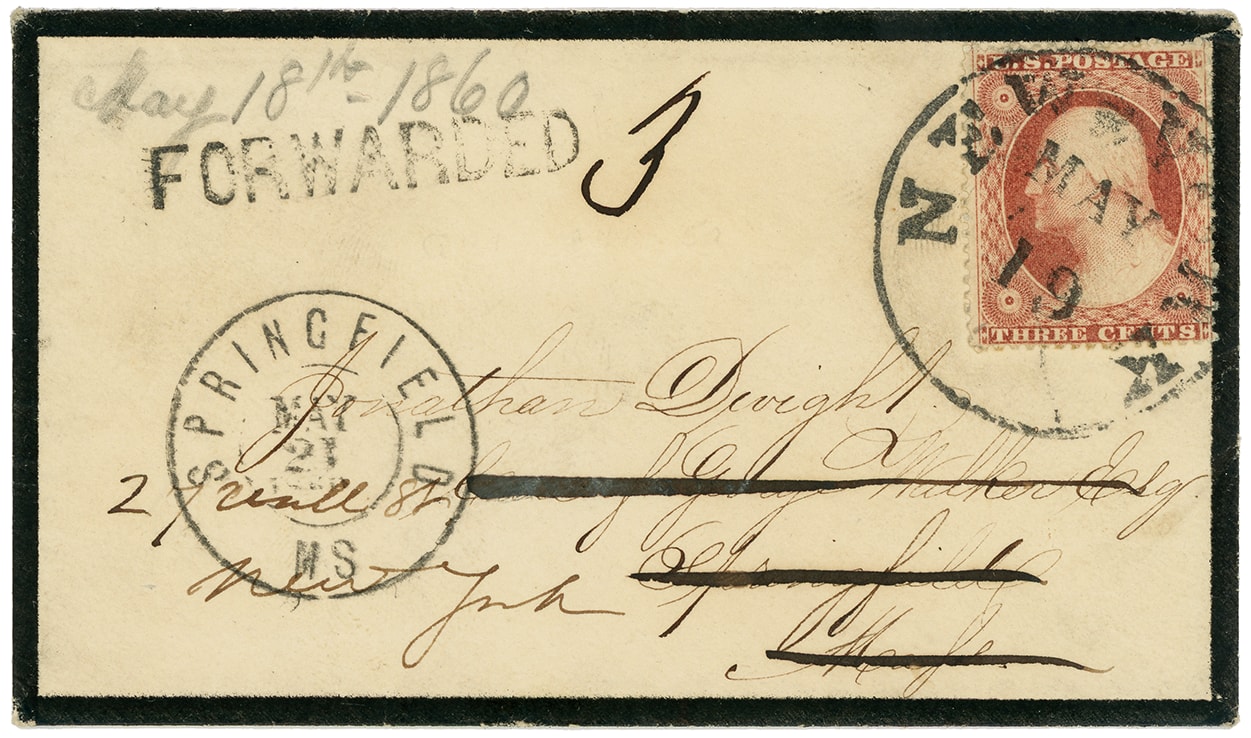 May 18th 1860
FORWARDED
3
U.S. POSTAGE
THREE CENTS
NEW-YORK
MAY
19
SPRINGFIELD
MAY
21
MS
Jonathan Dwight
Care of George Walker Esq
Springfield
Mass
2 Wall St
New York